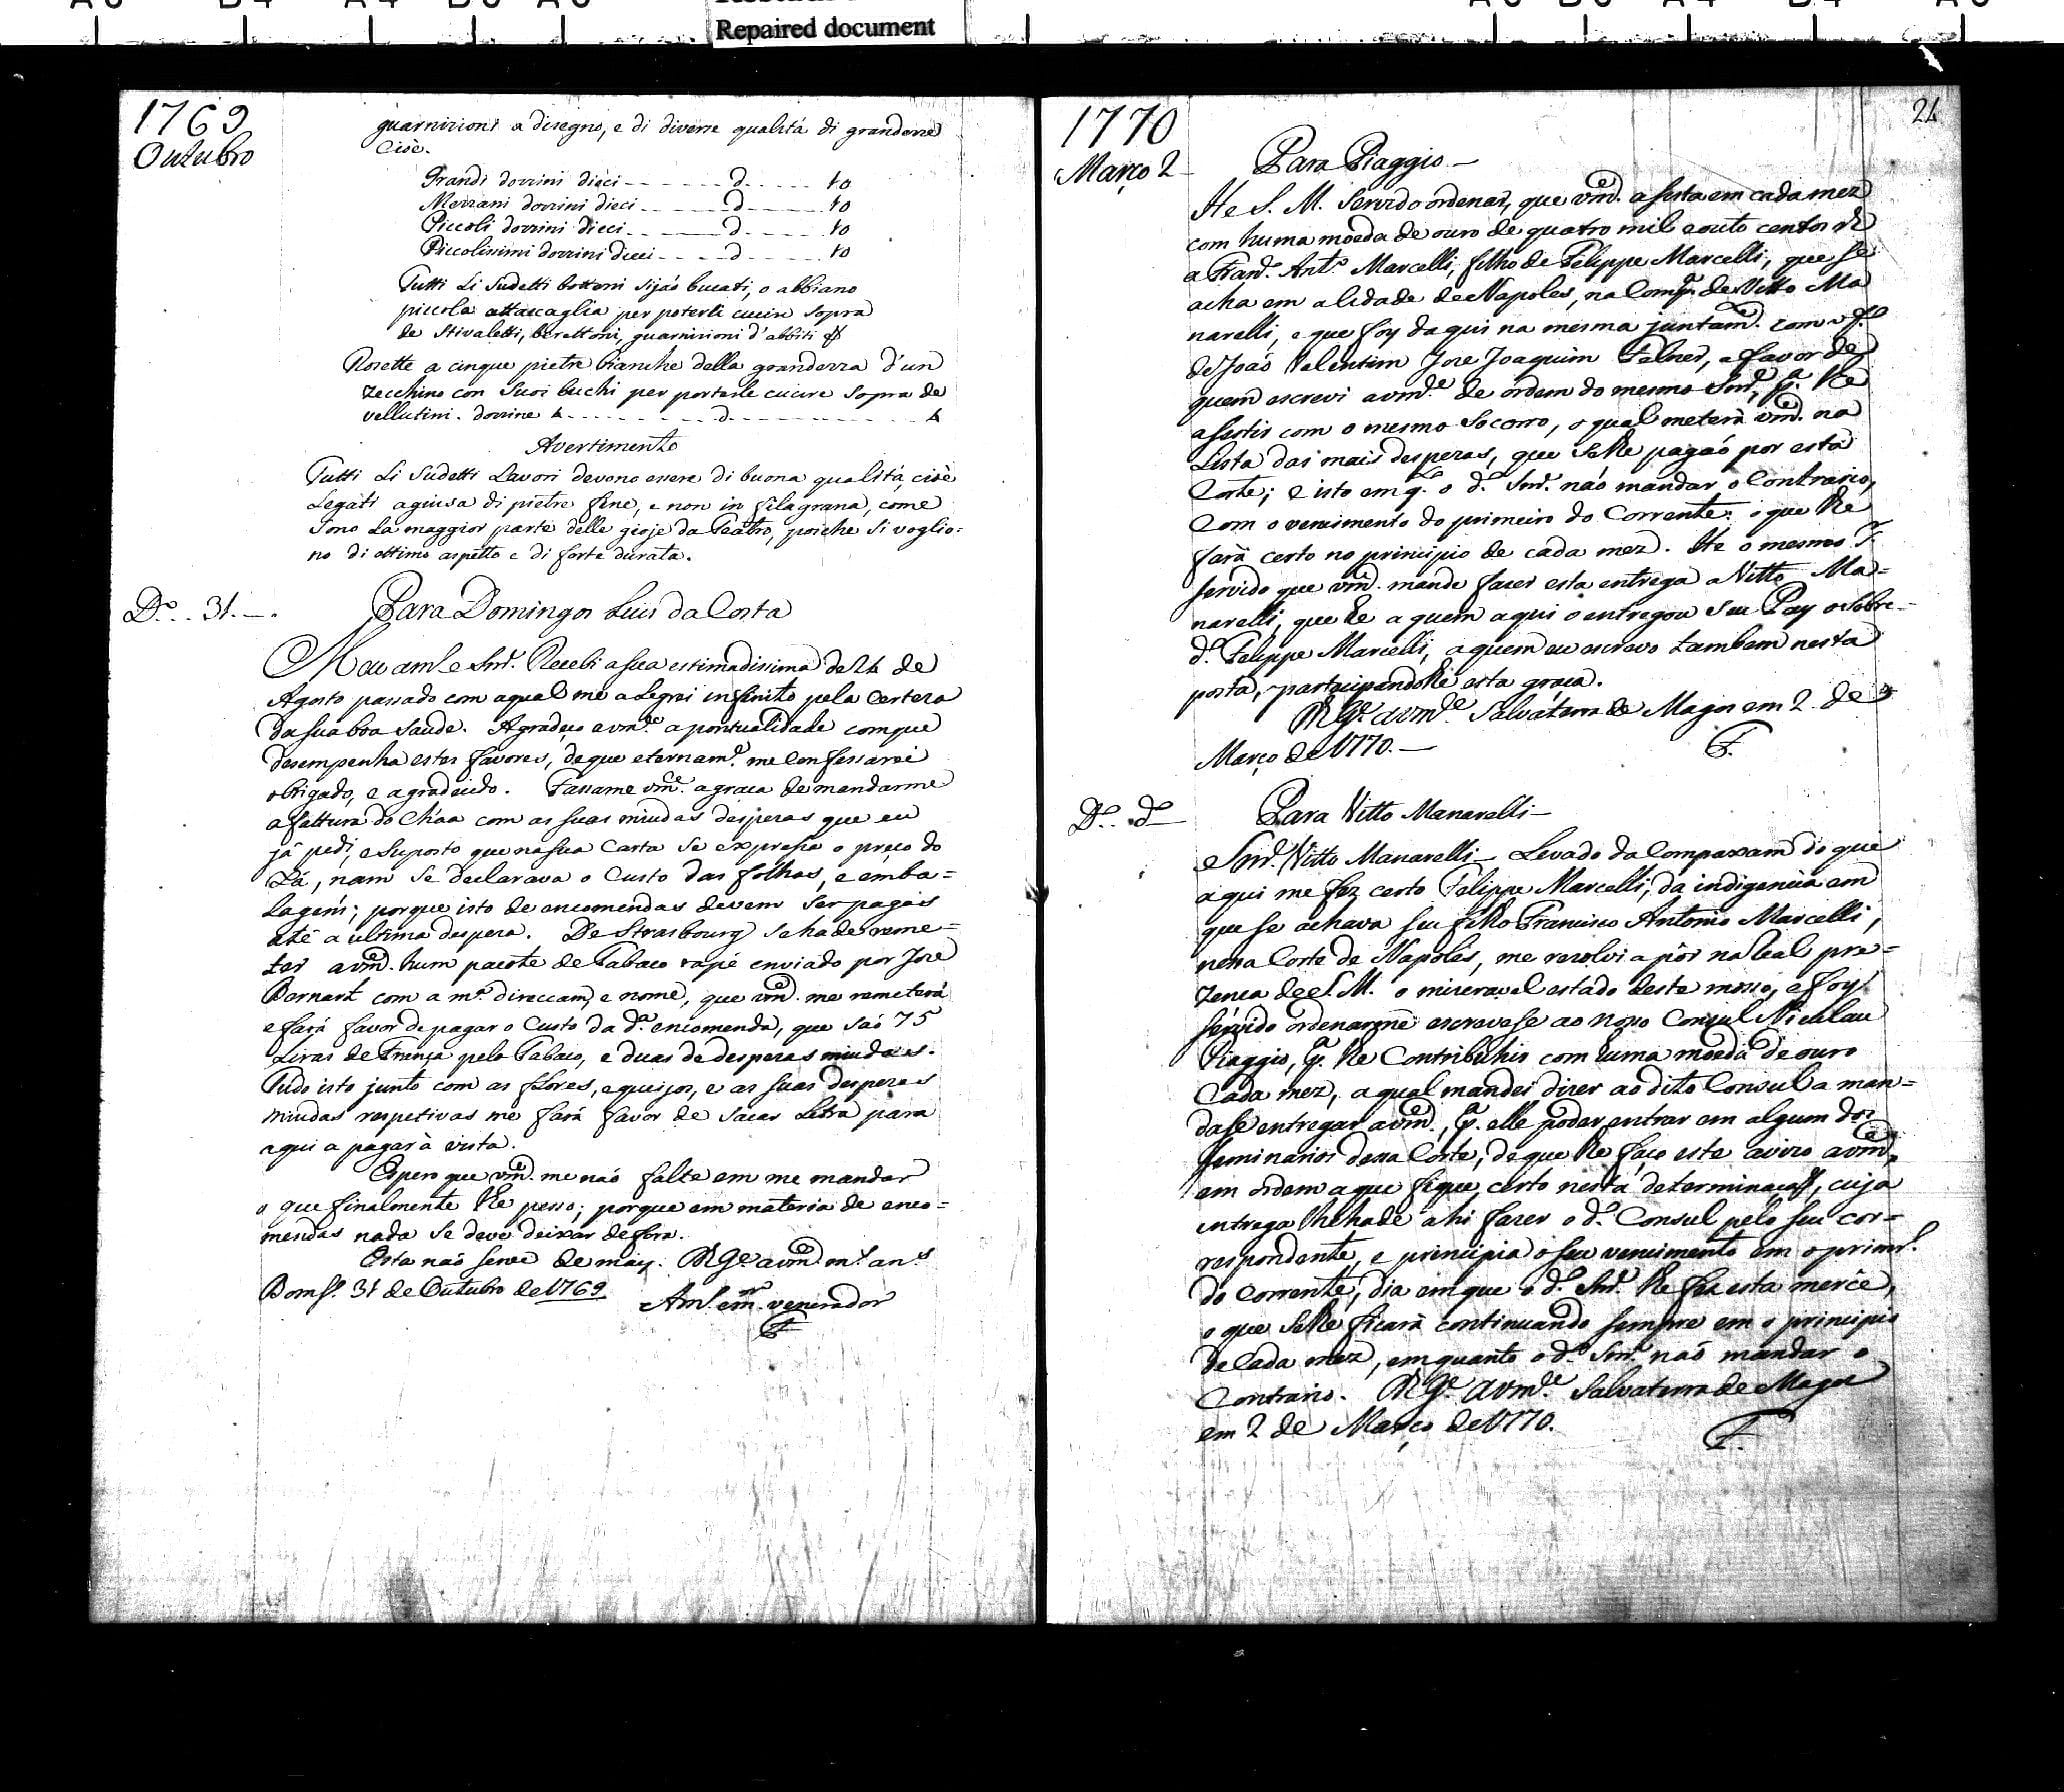 Repaired document
1769
Outubro
guarnizioni a disegno, e di diverse qualitá di grandezze
Cioè.
Grandi dozzini dieci - - - - - - - d. - - - - 10
Mezzani dozzini dieci - - - - - - - d - - - - 10
Piccoli dozzini dieci - - - - - - - d. - - - - 10
Piccolissimi dozzini dieci - - - - d - - - - 10
Tutti Li Sudetti bottoni sijaõ bucati, o abbiano
piccola attaccaglia per poterli cucire sopra
de Stivaletti, berettoni, guarnizioni d'abbiti &
Rosette a cinque pietre bianche della grandezza d'un
Zecchino con suoi buchi per porterle cucire sopra de
vellutini. dozzine 4 - - - - - - - d - - - - - - - 4
Avertimento
Tutti Li Sudetti Lavori devono essere di buona qualitá, cioè
Legati aguisa di pietre fine, e non in filagrana, come
sono La maggior parte delle gioje da Teatro, poiche si voglio=
no di ottimo aspetto e di forte durata.
D.º . . 31. —.
Para Domingos Luis da Costa
Meu am.º e Snr.' Recebi a sua estimadissima de 24 de
Agosto passado com aqual me alegrei infinito pela certeza
da sua boa saude. Agradeço a vm.ce a pontualidade comque
desempenha estes favores, deque eternam.e me confessarei
obrigado, e agradecido. Fassame vm.ce a graça de mandarme
a fattura do Cháa com as suas miudas despezas que eu
já pedi, e suposto que na sua Carta se expressa o preço do
Lá, nam se declarava o Custo das folhas, e emba=
lagem; porque isto de encomendas devem ser pagas
até a ultima despeza. De Strasbourg se ha de reme=
ter a vm.ce hum pacote de Tabaco rapé enviado por Joze
Bernard com a m.ª direccam, e nome, que vm.ce me remeterá
e fará favor de pagar o Custo da d.ª encomenda, que saõ 75
Liras de França pelo Tabaco, e duas de despezas miudas.
Tudo isto junto com as flores, e queijos, e as suas despezas
miudas respetivas me fará favor de sacar Letra para
aqui a pagar à vista.
Espero que vm.ce me naõ falte em me mandar
o que finalmente lhe pesso; porque em materia de enco=
mendas nada se deve deixar defora.
Esta naõ serve de mais. D.s G.e a vm.ce m.s an.s
31 de Outubro de 1769
Am.º e m.to venerador
F.
24
1770
Março 2
Para Piaggio —
He S. M. Servido ordenar, que vm.ce assista em cada mez
com huma moeda de ouro de quatro mil e outo centos rs
a Fran.co Ant.º Marcelli, filho de Felippe Marcelli, que se
acha em a Cidade de Napoles, na Comp.ª de Vitto Ma
narelli, e que foy da qui na mesma juntam.e com o f.º
de Joaõ Valentim Joze Joaquim Felner, a favor de
quem escrevi a vm.ce de ordem do mesmo Snr.', p.ª lhe
assistir com o mesmo Socorro, o qual meterá vm.ce na
Lista das mais despezas, que se lhe pagaõ por esta
Corte; e isto em q.to o d.º Snr.' naõ mandar o Contrario,
Com o vencimento do primeiro do Corrente: o que lhe
fará certo no principio de cada mez. He o mesmo S.
servido que vm.ce mande fazer esta entrega a Vitto Ma=
narelli, que he a quem aqui o entregou seu Pay o sobre
d.º Felippe Marcelli, a quem eu escrevo tambem nesta
posta, participandolhe esta graça.
D.s G.e a vm.ce Salvaterra de Magos em 2 de
Março de 1770. —
F.
D.º . . d.º
Para Vitto Manarelli —
Snr.' Vitto Manarelli — Levado da Compaxam do que
a qui me fez certo Felippe Marcelli, da indigencia em
que se achava seu filho Francisco Antonio Marcelli,
nessa Corte de Napoles, me rezolvi a pôr na Real pre=
zença de S. M. o mizeravel estado deste mosso, e foy
servido ordenarme escrevese ao nosso Consul Nicolau
Piaggio, p.ª lhe Contribuhir com huma moeda de ouro
Cada mez, a qual mandei dizer ao dito Consul a man=
dase entregar a vm.ce, p.ª elle poder entrar em algum dos
seminarios dessa Corte, de que lhe faço este avizo a vm.ce
em ordem a que fique certo nesta determinaçaõ, cuja
entrega lhe hade ahi fazer o d.º Consul pelo seu cor=
respondente, e principia o seu vencimento em o prim.ro
do Corrente, dia em que o d.º Snr.' lhe fez esta mercê,
o que se lhe ficará continuando sempre em o principio
de Cada mez, emquanto o d.º Snr.' naõ mandar o
Contrario. D.s G.e a vm.ce Salvaterra de Magos
em 2 de Março de 1770.
F.